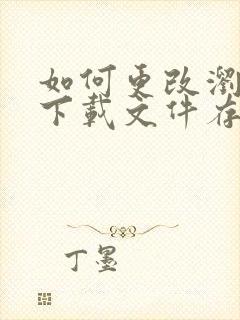 如何更改浏
下载文件存
丁墨